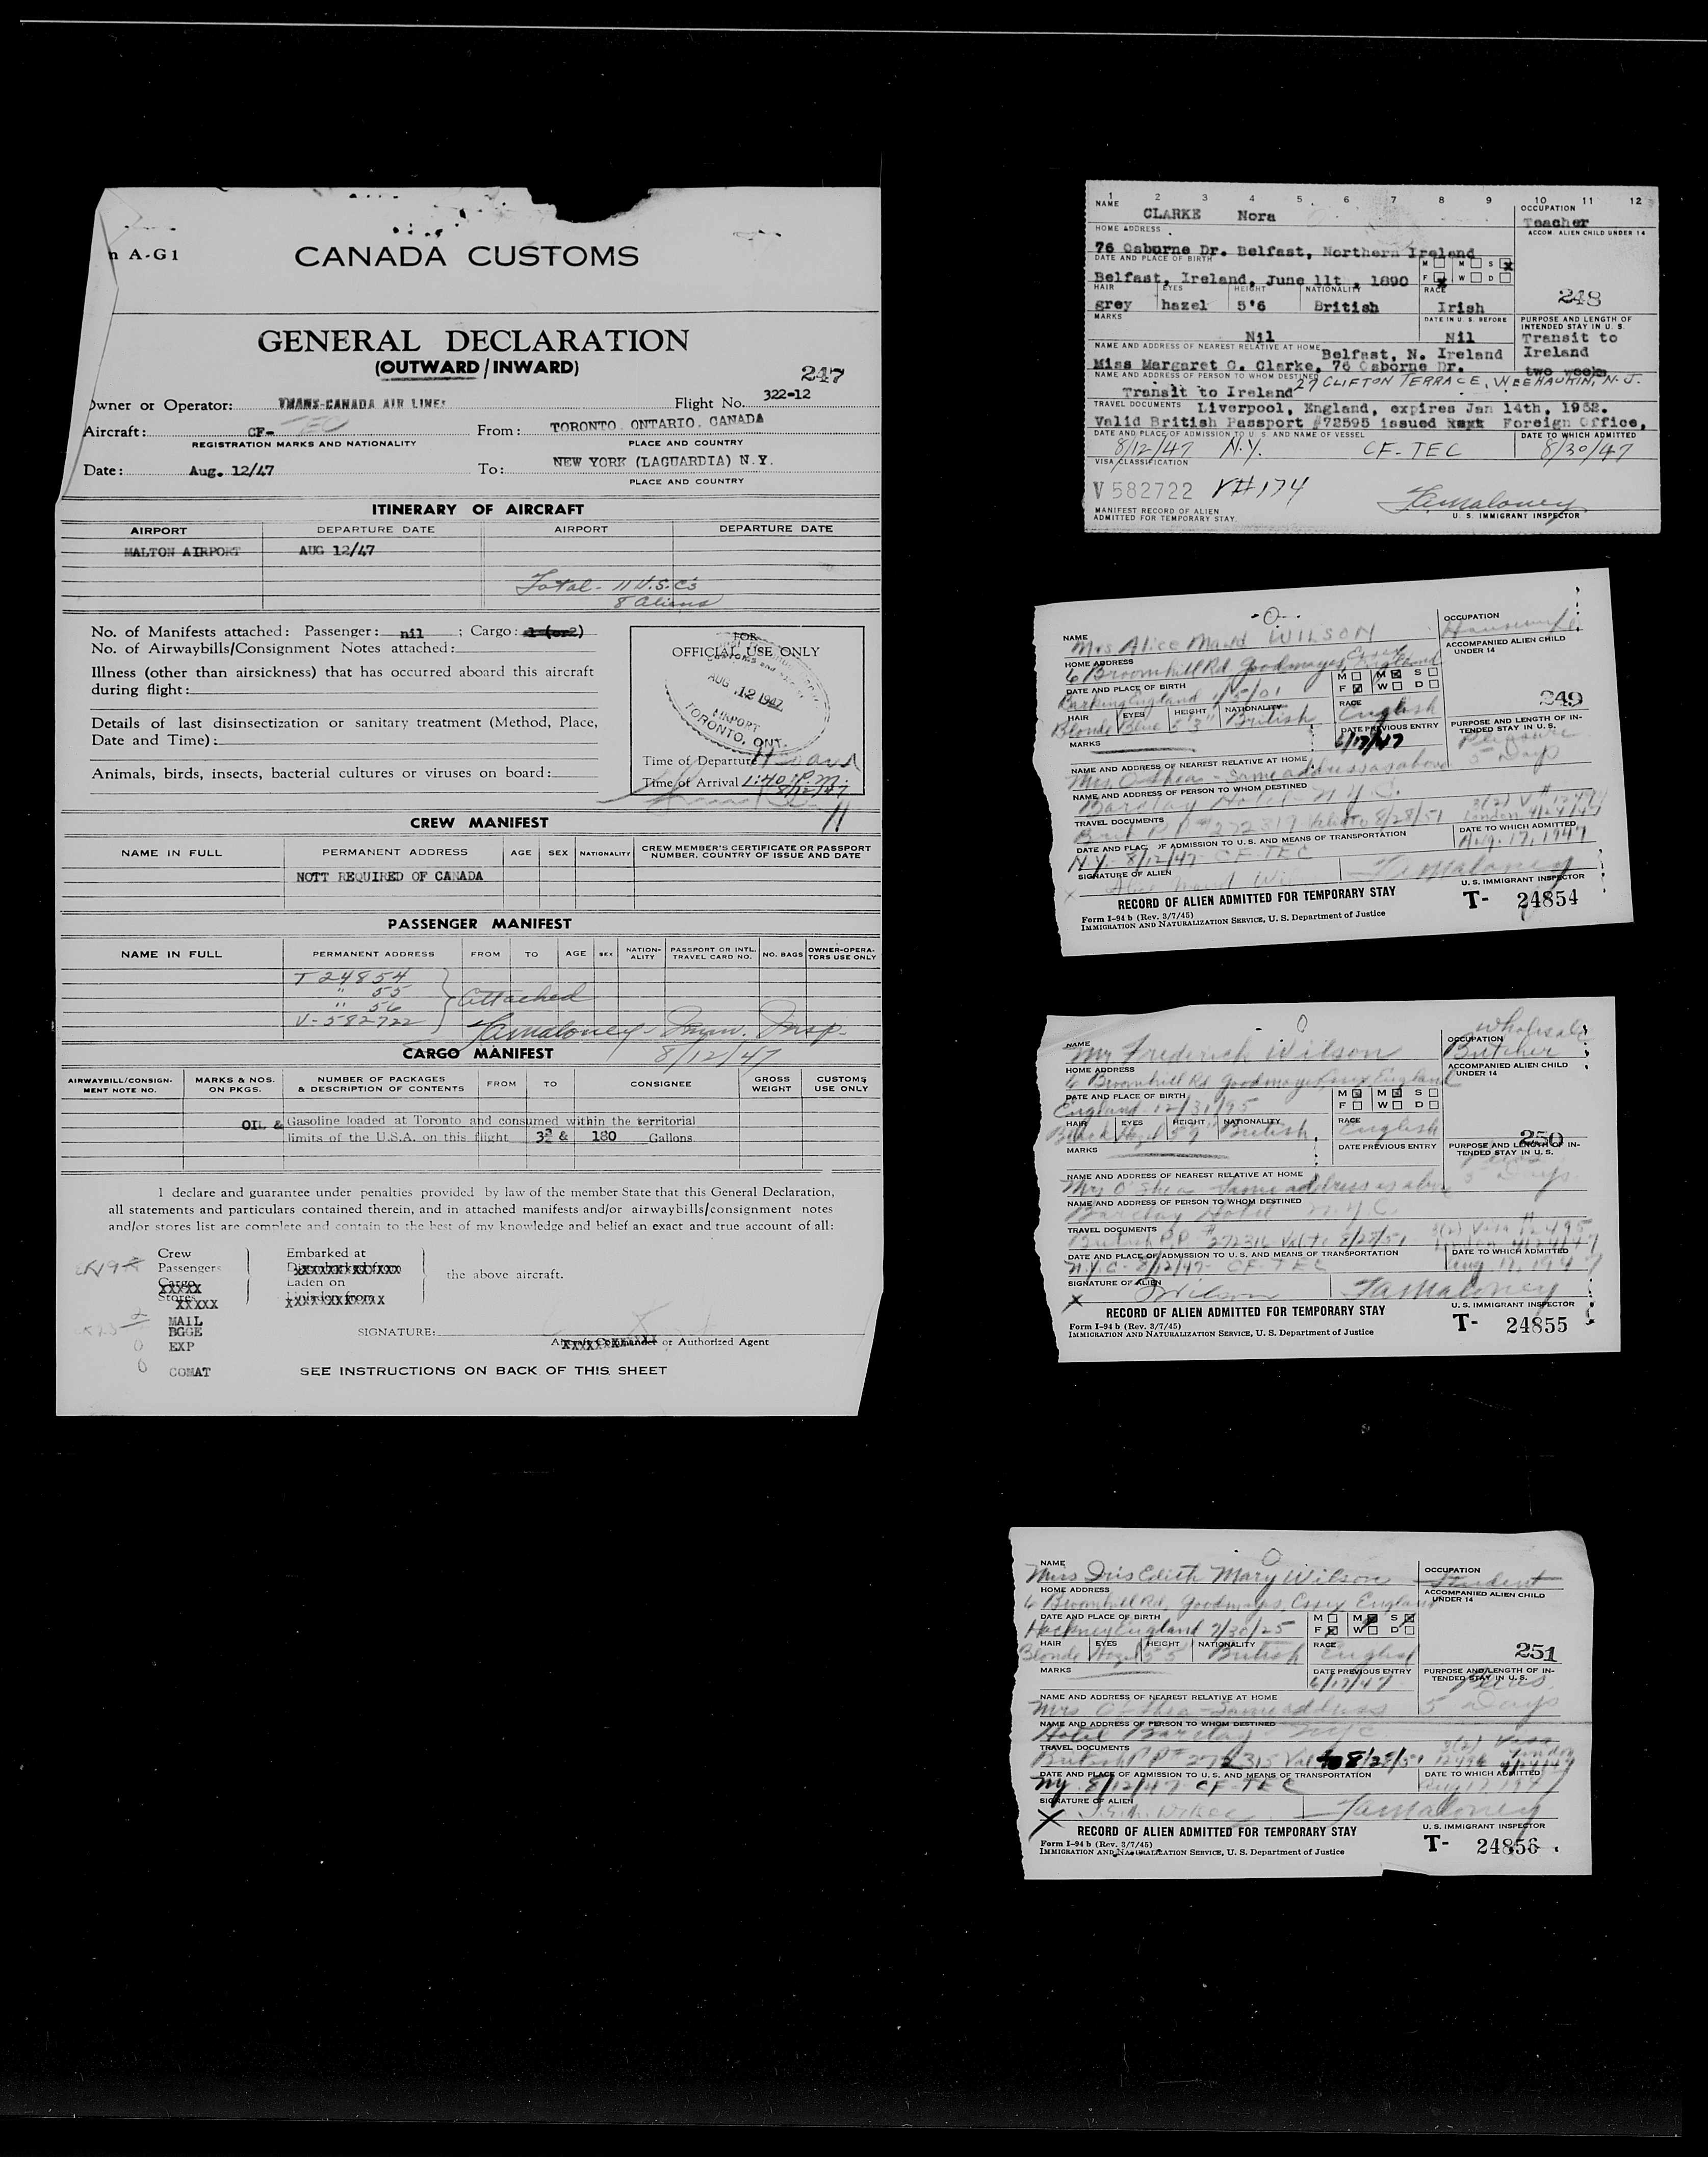 n A-G1
CANADA CUSTOMS
GENERAL DECLARATION
(OUTWARD / INWARD)
247
Owner or Operator: TRANS-CANADA AIR LINES Flight No. 322-12
Aircraft: CF-TEC From: TORONTO ONTARIO. CANADA
REGISTRATION MARKS AND NATIONALITY PLACE AND COUNTRY
Date: Aug. 12/47 To: NEW YORK (LAGUARDIA) N.Y.
PLACE AND COUNTRY
ITINERARY OF AIRCRAFT
AIRPORT DEPARTURE DATE AIRPORT DEPARTURE DATE
MALTON AIRPORT AUG 12/47
Total - 11 U.S.C's
8 Aliens
No. of Manifests attached: Passenger: nil ; Cargo: 1 (or2)
No. of Airwaybills/Consignment Notes attached:
Illness (other than airsickness) that has occurred aboard this aircraft
during flight:
Details of last disinsectization or sanitary treatment (Method, Place,
Date and Time):
Animals, birds, insects, bacterial cultures or viruses on board:
FOR
OFFICIAL USE ONLY
AUG 12 1947
AIRPORT
TORONTO, ONT.
Time of Departure
Time of Arrival 1:40 P.M.
8/12/47
11
CREW MANIFEST
NAME IN FULL PERMANENT ADDRESS AGE SEX NATIONALITY CREW MEMBER'S CERTIFICATE OR PASSPORT
NUMBER, COUNTRY OF ISSUE AND DATE
NOTT REQUIRED OF CANADA
PASSENGER MANIFEST
NAME IN FULL PERMANENT ADDRESS FROM TO AGE SEX NATION-ALITY PASSPORT OR INTL. TRAVEL CARD NO. NO. BAGS OWNER-OPERA-TORS USE ONLY
T 24854
" 55
" 56
V-582722
Attached
Tamaloney - Imm. Insp.
8/12/47
CARGO MANIFEST
AIRWAYBILL/CONSIGN-MENT NOTE NO. MARKS & NOS. ON PKGS. NUMBER OF PACKAGES & DESCRIPTION OF CONTENTS FROM TO CONSIGNEE GROSS WEIGHT CUSTOMS USE ONLY
OIL & Gasoline loaded at Toronto and consumed within the territorial
limits of the U.S.A. on this flight & 180 Gallons
I declare and guarantee under penalties provided by law of the member State that this General Declaration,
all statements and particulars contained therein, and in attached manifests and/or airwaybills/consignment notes
and/or stores list are complete and contain to the best of my knowledge and belief an exact and true account of all:
Crew Embarked at
Passengers
Cargo Laden on the above aircraft.
Stores
MAIL
BGGE
EXP
COMAT
SIGNATURE:
or Authorized Agent
SEE INSTRUCTIONS ON BACK OF THIS SHEET
1 2 3 4 5 6 7 8 9 10 11 12
NAME OCCUPATION
CLARKE Nora Teacher
HOME ADDRESS ACCOM. ALIEN CHILD UNDER 14
76 Osburne Dr. Belfast, Northern Ireland
DATE AND PLACE OF BIRTH M M S
Belfast, Ireland, June 11t , 1890 F W D
HAIR EYES HEIGHT NATIONALITY RACE
248
grey hazel 5'6 British Irish
MARKS DATE IN U. S. BEFORE PURPOSE AND LENGTH OF INTENDED STAY IN U. S.
Nil Nil Transit to
NAME AND ADDRESS OF NEAREST RELATIVE AT HOME Belfast, N. Ireland Ireland
Miss Margaret G. Clarke, 76 Osborne Dr. two weeks
NAME AND ADDRESS OF PERSON TO WHOM DESTINED 27 CLIFTON TERRACE, WEEHAUKIN, N.J.
Transit to Ireland
TRAVEL DOCUMENTS Liverpool, England, expires Jan 14th, 1952.
Valid British Passport #72595 issued Foreign Office,
DATE AND PLACE OF ADMISSION TO U. S. AND NAME OF VESSEL DATE TO WHICH ADMITTED
8/12/47 N.Y. CF-TEC 8/30/47
VISA CLASSIFICATION
V 582722 V#174
Tamaloney
MANIFEST RECORD OF ALIEN
ADMITTED FOR TEMPORARY STAY
U. S. IMMIGRANT INSPECTOR
-0-
NAME OCCUPATION
Mrs Alice Maud WILSON Housewife
HOME ADDRESS ACCOMPANIED ALIEN CHILD UNDER 14
6 Broomhill Rd, Goodmayes, Essex England
DATE AND PLACE OF BIRTH M M S
Barking England 1/5/01 F W D
249
HAIR EYES HEIGHT NATIONALITY RACE
Blonde Blue 5'3" British English
MARKS DATE PREVIOUS ENTRY PURPOSE AND LENGTH OF IN-TENDED STAY IN U. S.
6/17/47 Pleasure
5 Days
NAME AND ADDRESS OF NEAREST RELATIVE AT HOME
Mrs. O'Shea - Same address as above
NAME AND ADDRESS OF PERSON TO WHOM DESTINED
Barclay Hotel - N.Y.C.
TRAVEL DOCUMENTS
Brit PP #272317 Valid to 8/28/51 London 4/24/47
DATE AND PLACE OF ADMISSION TO U. S. AND MEANS OF TRANSPORTATION DATE TO WHICH ADMITTED
N.Y. 8/12/47 CF-TEC Aug. 17, 1947
SIGNATURE OF ALIEN
Tamaloney
RECORD OF ALIEN ADMITTED FOR TEMPORARY STAY U. S. IMMIGRANT INSPECTOR
Form I-94 b (Rev. 3/7/45)
IMMIGRATION AND NATURALIZATION SERVICE, U. S. Department of Justice
T- 24854
0
Wholesale
NAME OCCUPATION
Mr Frederick Wilson Butcher
HOME ADDRESS ACCOMPANIED ALIEN CHILD UNDER 14
6 Broomhill Rd Goodmayes Essex England
DATE AND PLACE OF BIRTH M M S
England - 12/31/95 F W D
HAIR EYES HEIGHT NATIONALITY RACE
Black Hazel 5'9" British English
250
MARKS DATE PREVIOUS ENTRY PURPOSE AND LENGTH OF IN-TENDED STAY IN U. S.
5 Days
NAME AND ADDRESS OF NEAREST RELATIVE AT HOME
Mrs O'Shea - Same address as above
NAME AND ADDRESS OF PERSON TO WHOM DESTINED
Barclay Hotel N.Y.C.
TRAVEL DOCUMENTS
British P.P. #272316 Val to 8/28/51 3(2) Visa 12495 London 4/24/47
DATE AND PLACE OF ADMISSION TO U. S. AND MEANS OF TRANSPORTATION DATE TO WHICH ADMITTED
N.Y.C - 8/12/47 - CF-TEC Aug 17, 1947
SIGNATURE OF ALIEN
Wilson Tamaloney
RECORD OF ALIEN ADMITTED FOR TEMPORARY STAY U. S. IMMIGRANT INSPECTOR
Form I-94 b (Rev. 3/7/45)
IMMIGRATION AND NATURALIZATION SERVICE, U. S. Department of Justice
T- 24855
0
NAME OCCUPATION
Miss Iris Edith Mary Wilson Student
HOME ADDRESS ACCOMPANIED ALIEN CHILD UNDER 14
6 Broomhill Rd, Goodmayes, Essex England
DATE AND PLACE OF BIRTH M M S
Hackney England 7/30/25 F W D
HAIR EYES HEIGHT NATIONALITY RACE
Blonde Hazel 5'5 British English
251
MARKS DATE PREVIOUS ENTRY PURPOSE AND LENGTH OF IN-TENDED STAY IN U. S.
6/17/47
NAME AND ADDRESS OF NEAREST RELATIVE AT HOME
Mrs O'Shea - Same address 5 Days
NAME AND ADDRESS OF PERSON TO WHOM DESTINED
Hotel Barclay NYC
TRAVEL DOCUMENTS
British P.P # 272315 Val to 8/28/51 3(2) Visa 12496 London 4/24/47
DATE AND PLACE OF ADMISSION TO U. S. AND MEANS OF TRANSPORTATION DATE TO WHICH ADMITTED
NY. 8/12/47 CF-TEC Aug 17 1947
SIGNATURE OF ALIEN
Tamaloney
RECORD OF ALIEN ADMITTED FOR TEMPORARY STAY U. S. IMMIGRANT INSPECTOR
Form I-94 b (Rev. 3/7/45)
IMMIGRATION AND NATURALIZATION SERVICE, U. S. Department of Justice
T- 24856